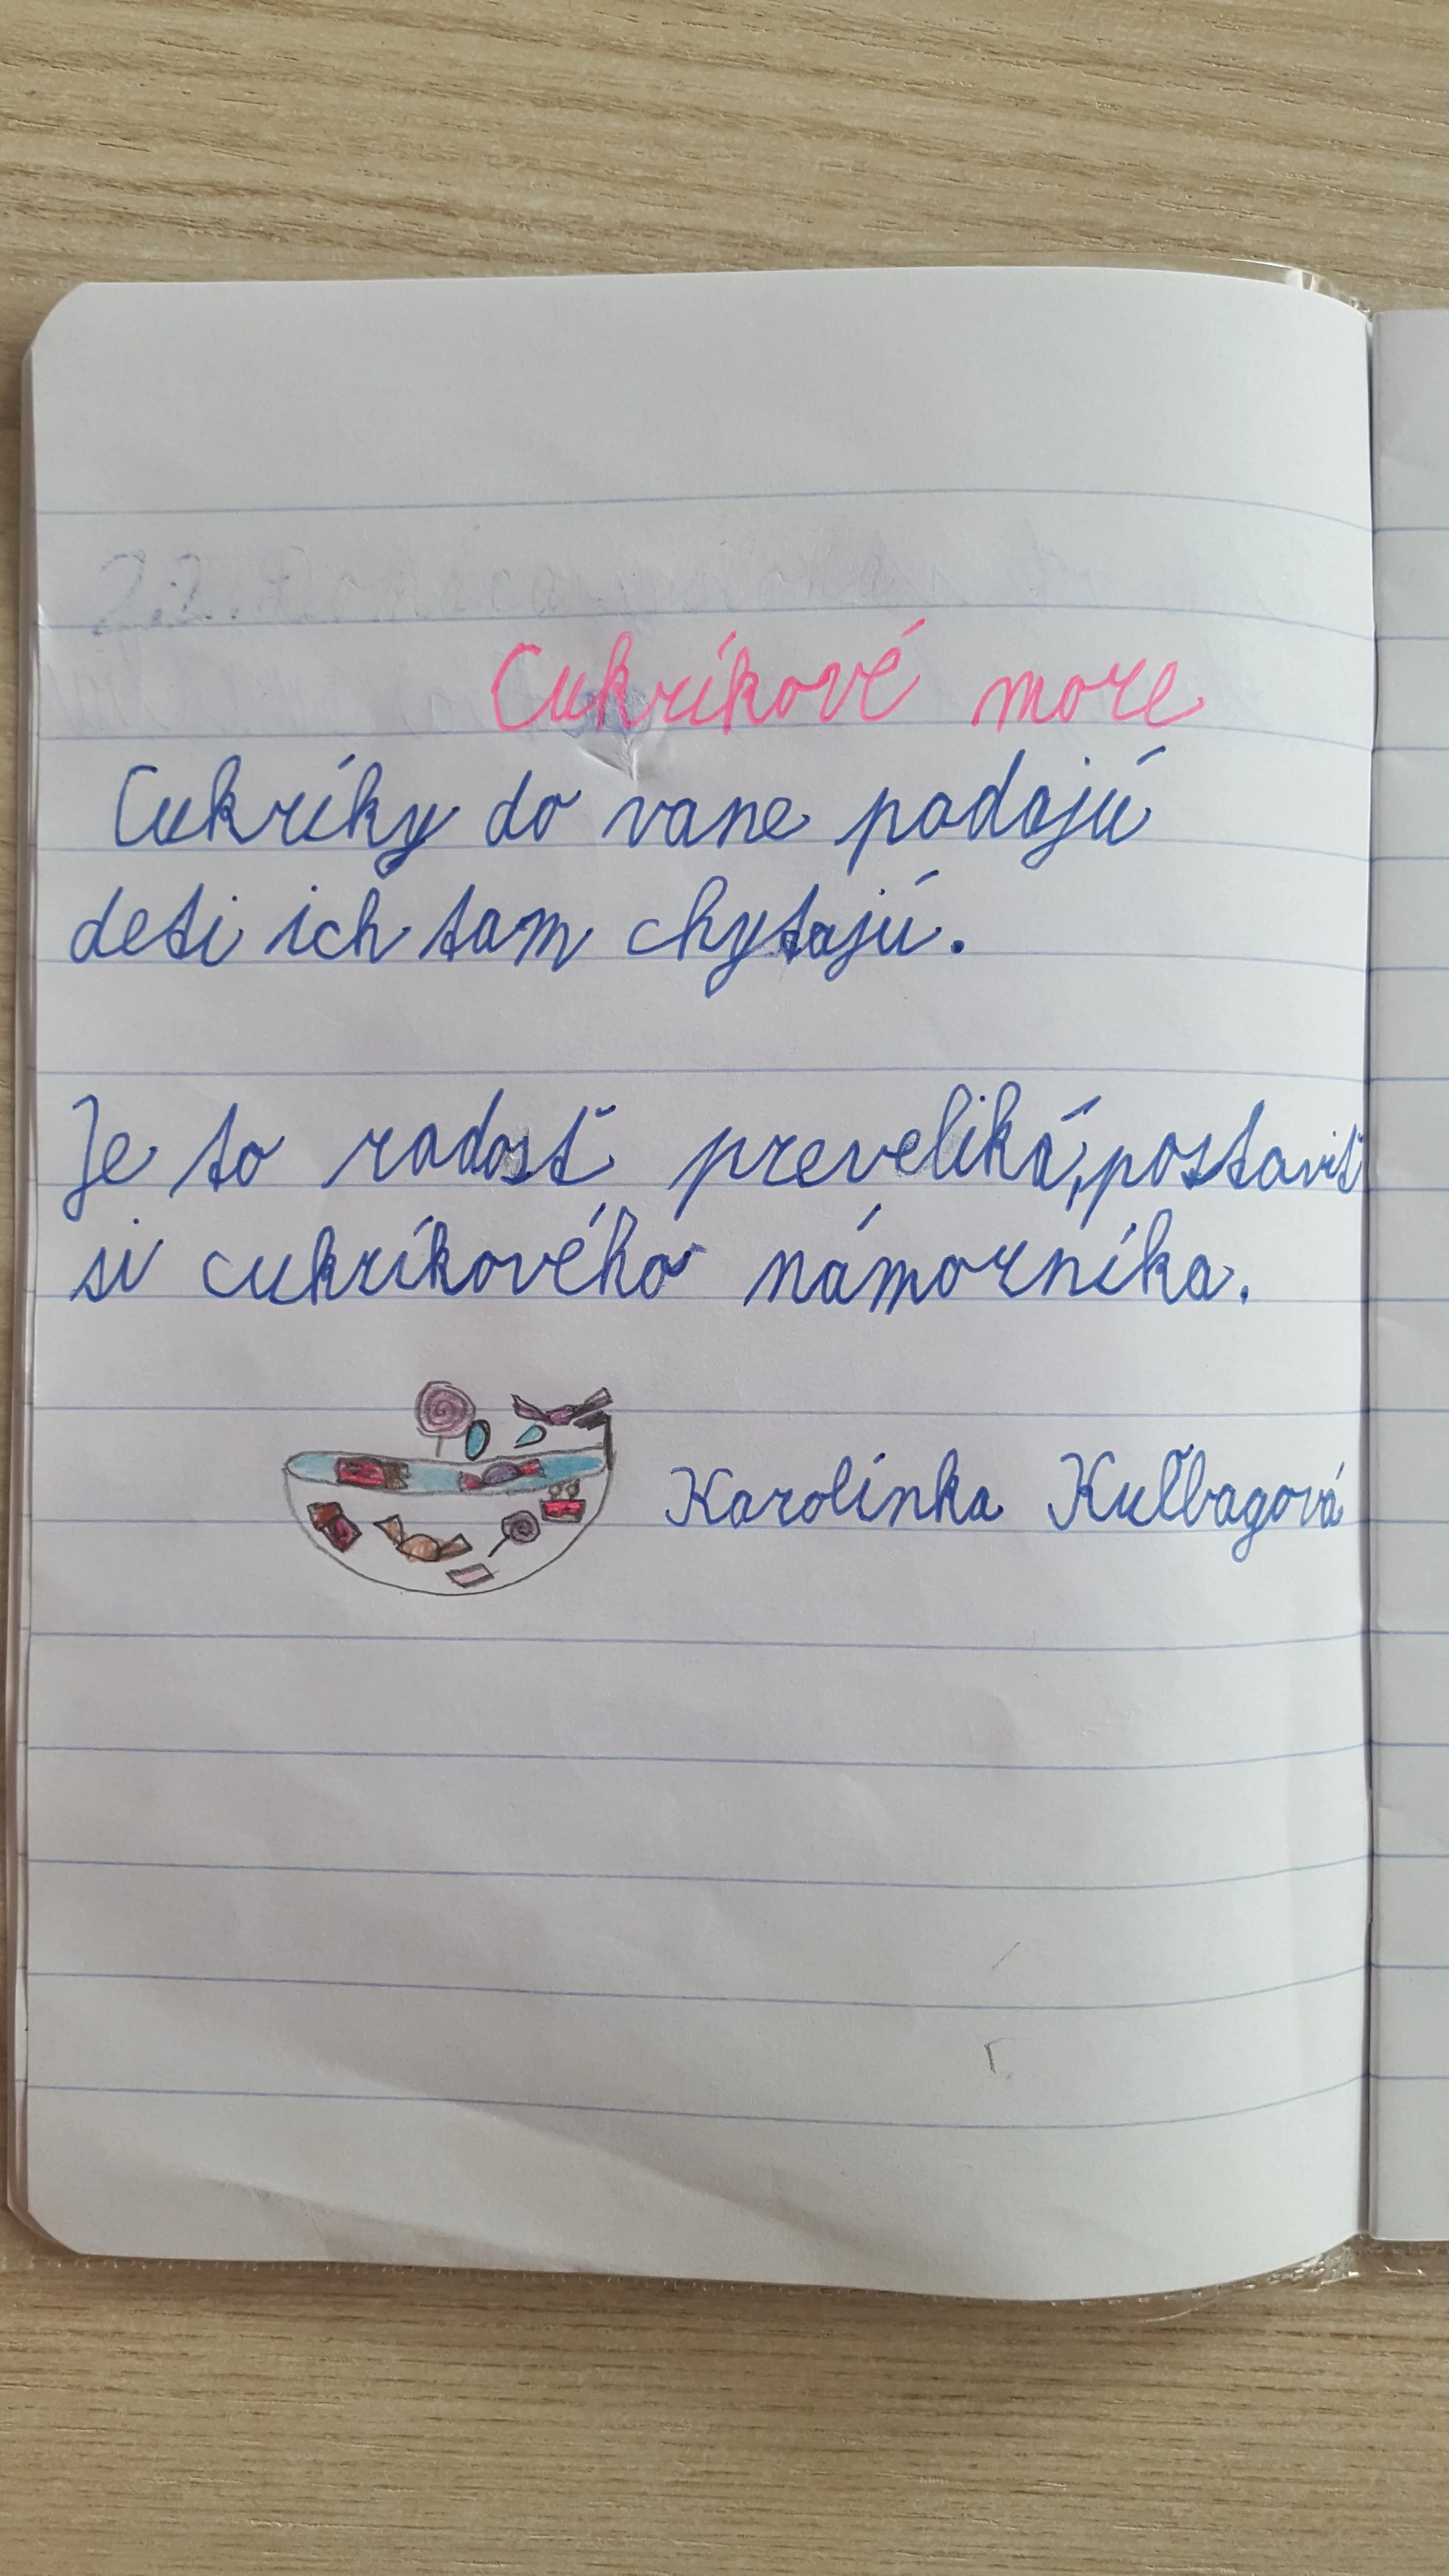 Cukríkové more
Cukríky do vane padajú
deti ich tam chytajú.
Je to radosť preveliká, postaviť
si cukríkového námorníka.
Karolínka Kuľbagová